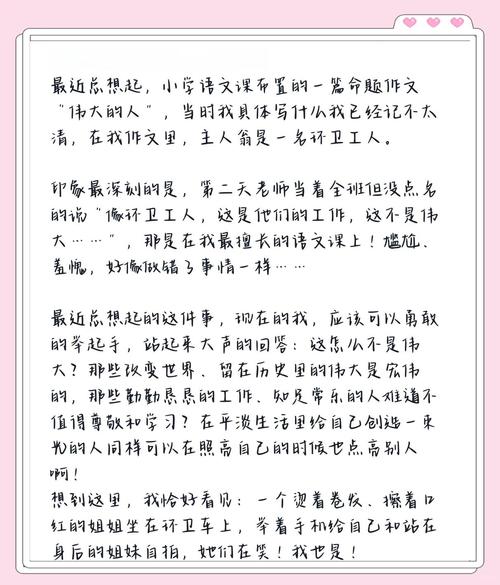 最近总想起，小学语文课布置的一篇命题作文
“伟大的人”，当时我具体写什么我已经记不太
清，在我作文里，主人翁是一名环卫工人。
印象最深刻的是，第二天老师当着全班但没点名
的说“像环卫工人，这是他们的工作，这不是伟
大……”，那是在我最擅长的语文课上！尴尬、
羞愧，好像做错了事情一样……
最近总想起的这件事，现在的我，应该可以勇敢
的举起手，站起来大声的回答：这怎么不是伟
大？那些改变世界、留在历史里的伟大是宏伟
的，那些勤勤恳恳的工作、知足常乐的人难道不
值得尊敬和学习？在平淡生活里给自己创造一束
光的人同样可以在照亮自己的时候也点亮别人
啊！
想到这里，我恰好看见：一个烫着卷发、擦着口
红的姐姐坐在环卫车上，举着手机给自己和站在
身后的姐妹自拍，她们在笑！我也是！